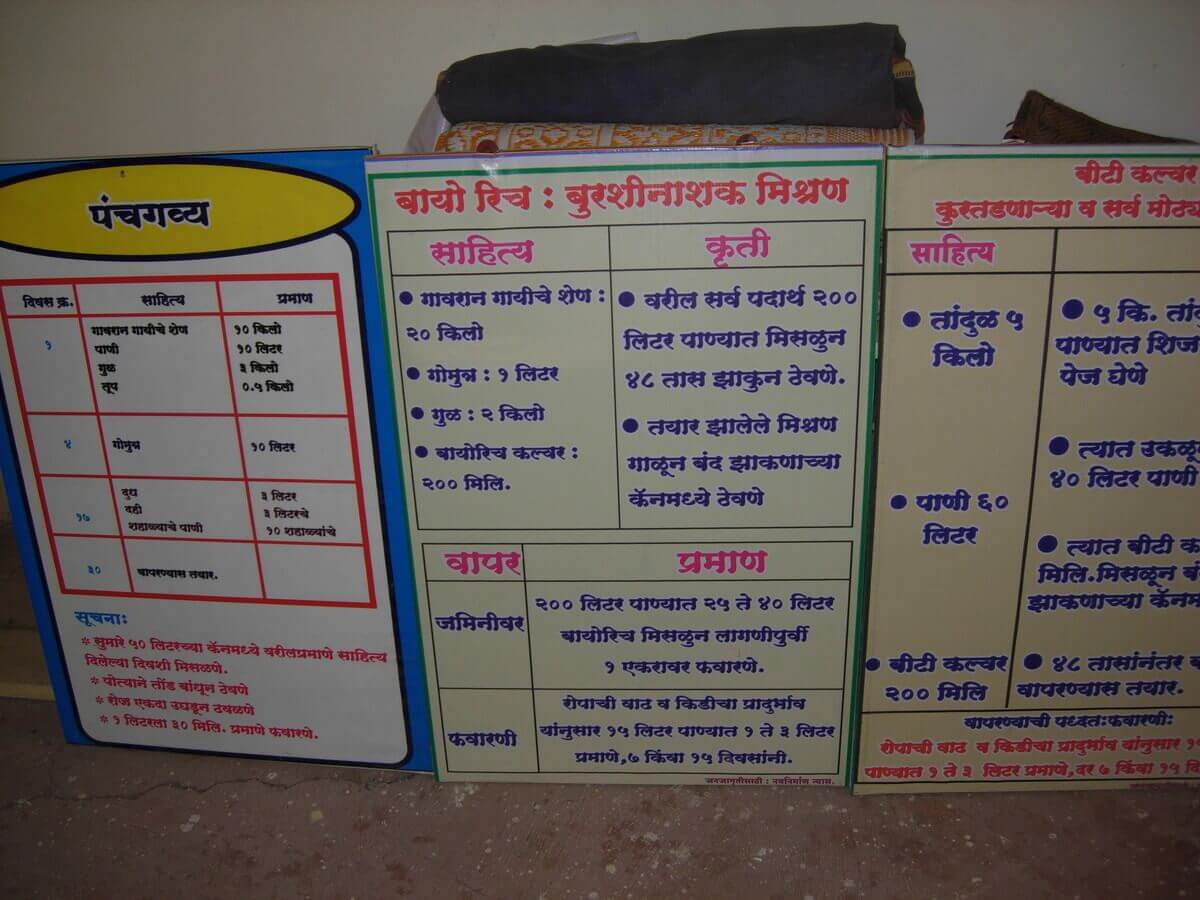 पंचगव्य
दिवस क्र. साहित्य प्रमाण
१ गावरान गायीचे शेण १० किलो
पाणी १० लिटर
गुळ ३ किलो
तूप ०.५ किलो
४ गोमुत्र १० लिटर
दुध ३ लिटर
१७ दही ३ लिटरचे
शहाळ्याचे पाणी १० शहाळ्यांचे
३० वापरण्यास तयार.
सूचनाः
* सुमारे ५० लिटरच्या कॅनमध्ये वरीलप्रमाणे साहित्य
दिलेल्या दिवशी मिसळणे.
* पोत्याने तोंड बांधून ठेवणे
* रोज एकदा उघडून ढवळणे
* १ लिटरला ३० मिलि. प्रमाणे फवारणे.
बायो रिच : बुरशीनाशक मिश्रण
साहित्य कृती
● गावरान गायीचे शेण :
२० किलो
● गोमुत्र : १ लिटर
● गुळ : २ किलो
● बायोरिच कल्चर :
२०० मिलि.
● वरील सर्व पदार्थ २००
लिटर पाण्यात मिसळुन
४८ तास झाकुन ठेवणे.
● तयार झालेले मिश्रण
गाळून बंद झाकणाच्या
कॅनमध्ये ठेवणे
वापर प्रमाण
जमिनीवर
२०० लिटर पाण्यात २५ ते ४० लिटर
बायोरिच मिसळुन लागणीपुर्वी
१ एकरावर फवारणे.
फवारणी
रोपाची वाढ व किडीचा प्रादुर्भाव
यांनुसार १५ लिटर पाण्यात १ ते ३ लिटर
प्रमाणे,७ किंवा १५ दिवसांनी.
जनजागृतीसाठी : नवनिर्माण न्यास.
बीटी कल्चर
कुरतडणाऱ्या व सर्व
साहित्य
● तांदुळ ५
किलो
● पाणी ६०
लिटर
● बीटी कल्चर
२०० मिलि
● ५ कि.
पाण्यात
पेज घेणे
● त्यात
४० लिटर पाणी
● त्यात बीटी
मिलि.मिसळून
झाकणाच्या
● ४८ तासांनंतर
वापरण्यास तयार.
वापरण्याची पध्दतःफवारणीः
रोपाची वाढ व किडीचा प्रादुर्भाव यांनुसार
पाण्यात १ ते ३ लिटर प्रमाणे,दर ७ किंवा १५